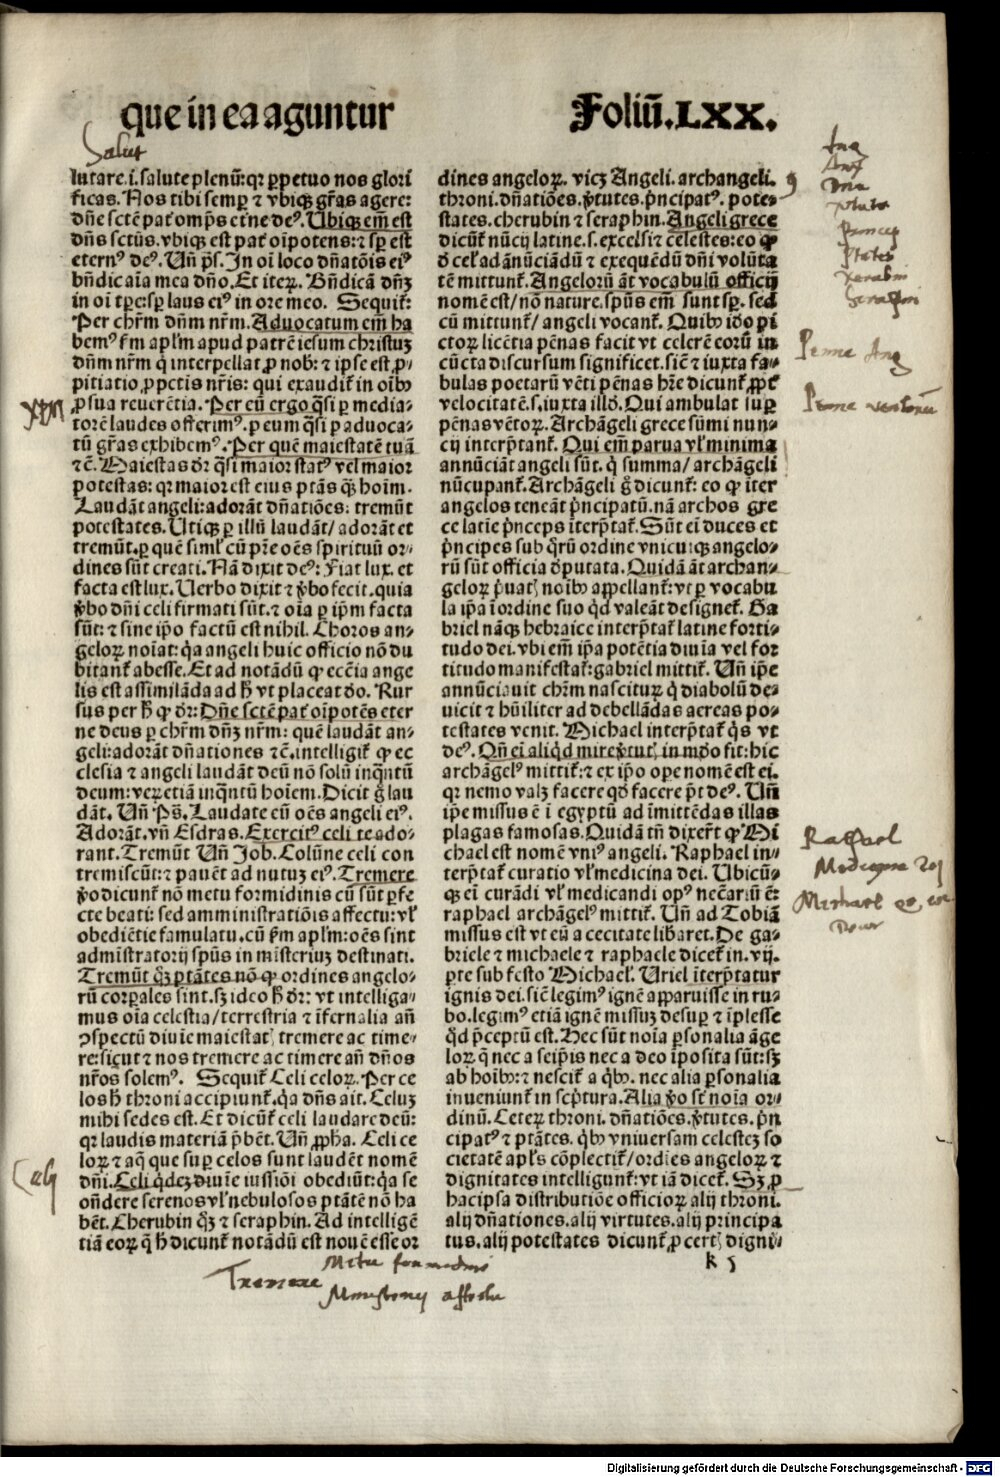 que in ea aguntur
Foliū.LXX.
Salut
lutare.i.salute plenū:qr ꝑpetuo nos glori
ficas. Nos tibi semꝑ ⁊ vbiqꝫ gr̄as agere:
dn̄e sctē pat̄ omp̄s eterne deꝰ. Ubiqꝫ em̄ est
dn̄s sctūs. vbiqꝫ est pat̄ oīpotens:⁊ sꝑ est
eternꝰ deꝰ. Un̄ p̄s. In oī loco dn̄atōis eiꝰ
bn̄dic aīa mea dn̄o. Et iteꝝ. Bn̄dicā dn̄ꝫ
in oī tꝑe:sꝑ laus eiꝰ in ore meo. Sequit̄:
Per chr̄m dn̄m nr̄m. Aduocatum em̄ ha
bemꝰ ẜm apl̄m apud patrē iesum christuꝫ
dn̄m nr̄m q̇ interpellat ꝓ nob̄:⁊ ipse est ꝓ-
pitiatio ꝓ pctis nr̄is: qui exaudit̄ in oībꝰ
ꝓ sua reuerētia. Per eū ergo q̄si ꝑ media-
torē laudes offerimꝰ. ꝑ eum q̄si ꝑ aduoca-
tū gr̄as exhibemꝰ. Per quē maiestatē tuā
⁊c̄. Maiestas dr̄ q̄si maior statꝰ vel maior
potestas: qr maior est eius ptās q̄ꝫ hoīm.
Laudāt angeli:adorāt dn̄atiōes: tremūt
potestates. Utiqꝫ ꝑ illū laudāt/adorāt et
tremūt. ꝑ quē siml̄ cū pr̄e oēs spirituū or-
dines sūt creati. Nā dixit deꝰ: Fiat lux. et
facta est lux. Uerbo dixit ⁊ v̄bo fecit. quia
v̄bo dn̄i celi firmati sūt. ⁊ oīa ꝑ ip̄m facta
sūt: ⁊ sine ip̄o factū est nihil. Choros an-
geloꝝ noīat: q̄a angeli huic officio nō du
bitant̄ abesse. Et ad notādū ꝙ eccīa ange
lis est assimilāda ad h̄ vt placeat deo. Rur
sus per h̄ ꝙ dr̄: Dn̄e sctē pat̄ oīpotēs eter
ne deus ꝑ chr̄m dn̄ꝫ nr̄m: quē laudāt an-
geli:adorāt dn̄ationes ⁊c̄. intelligit̄ ꝙ ec
clesia ⁊ angeli laudāt deū nō solū inq̄ntū
deum: veꝝ etiā inq̄ntū hoīem. Dicit ḡ lau
dāt. Un̄ Ps̄. Laudate eū oēs angeli eiꝰ.
Adorāt. vn̄ Esdras. Exercitꝰ celi te ado-
rant. Tremūt Un̄ Job. Colūne celi con
tremiscūt: ⁊ pauēt ad nutuꝫ eiꝰ. Tremere
v̄o dicunt̄ nō metu formidinis cū sūt ꝑfe
cte beati: sed amministratiōis affectu: vl̄
obediētie famulatu. cū ẜm apl̄m: oēs sint
admīstratorij spūs in misteriuꝫ destinati.
Tremūt q̄ꝫ ptātes nō ꝙ ordines angelo-
rū corꝑales sint. sꝫ ideo h̄ dr̄: vt intelliga-
mus oīa celestia/terrestria ⁊ īfernalia an̄
ↄspectū diuīe maiestat̄ tremere ac time-
re: sicut ⁊ nos tremere ac timere an̄ dn̄os
nr̄os solemꝰ. Sequit̄ Celi celoꝝ. Per ce
los h̄ throni accipiunt̄. q̄a dn̄s ait. Celuꝫ
mihi sedes est. Et dicūt̄ celi laudare deū:
qr laudis materiā p̄bēt. Un̄ ꝓph̄a. Celi ce
loꝝ ⁊ aq̄ que suꝑ celos sunt laudēt nomē
dn̄i. Celi q̇deꝫ diuīe iussiōi obediūt: q̄a se
on̄dere serenos vl̄ nebulosos ptātē nō ha
bēt. Cherubin q̄ꝫ ⁊ seraphin. Ad intelligē
tiā eoꝝ q̄ h̄ dicunt̄ notādū est nouē esse or
dines angeloꝝ. vicꝫ Angeli. archangeli.
throni. dn̄atiōes. v̄tutes. p̄ncipatꝰ. potes-
states. cherubin ⁊ seraphin. Angeli grece
dicūt̄ nūcij latine. s. excelsi ⁊ celestes: eo ꝙ
d̄ cel̄ ad ānūciādū ⁊ exequēdū dn̄i volūta
tē mittunt̄. Angeloꝝ āt vocabulū officij
nomē est/nō nature. spūs em̄ sunt sꝑ. sed
cū mittunt̄/angeli vocant̄. Quibꝰ ido pi
ctoꝝ licētia pēnas facit vt celerē eorū in
cūcta discursum significet. sic̄ ⁊ iuxta fa-
bulas poetarū vēti pēnas hr̄e dicunt̄ ꝓpt̄
velocitatē. s. iuxta illd̄. Qui ambulat suꝑ
pēnas vētoꝝ. Archāgeli grece sūmi nun-
cij interp̄tant̄. Qui em̄ parua vl̄ minima
annūciāt angeli sūt. q̇ summa/archāgeli
nūcupant̄. Archāgeli g̊ dicunt̄: eo ꝙ iter
angelos teneāt p̄ncipatū. nā archos gre
ce latie p̄nceps iterp̄tat̄. Sūt ei duces et
p̄ncipes sub q̇rū ordine vnicuiqꝫ angelo-
rū sūt officia d̄putata. Quidā āt archan-
geloꝝ p̄uat̄ noībꝰ appellant̄: vt ꝑ vocabu
la ip̄a ī ordine suo q̇d valeāt designet̄. Ga
briel nāqꝫ hebraice interp̄tat̄ latine forti-
tudo dei. vbi em̄ ip̄a potētia diuīa vel for
titudo manifestat̄: gabriel mittit̄. Un̄ ip̄e
annūciauit chr̄m nascituꝝ q̇ diabolū de-
uicit ⁊ hūiliter ad debellādas aereas po-
testates venit. Michael interp̄tat̄ q̇s vt
deꝰ. Qn̄ ei aliq̇d mire v̄tut̄ in mūdo fit: hic
archāgelꝰ mittit̄: ⁊ ex ip̄o oꝑe nomē est ei.
qr nemo valꝫ facere qd̄ facere p̄t deꝰ. Un̄
ip̄e missus ē ī egyptū ad īmittēdas illas
plagas famosas. Quidā tn̄ dixer̄t ꝙ Mi
chael est nomē vniꝰ angeli. Raphael in-
terp̄tat̄ curatio vl̄ medicina dei. Ubicū-
qꝫ ei curādi vl̄ medicandi opꝰ necāriū ē:
raphael archāgelꝰ mittit̄. Un̄ ad Tobiā
missus est vt eū a cecitate libāret. De ga-
briele ⁊ michaele ⁊ raphaele dicet̄ in. vij.
ꝑte sub festo Michael̄. Uriel īterp̄tatur
ignis dei. sic̄ legimꝰ ignē apparuisse in ru-
bo. legimꝰ etiā ignē missuꝫ desuꝑ ⁊ īplesse
q̇d p̄ceptū est. Hec sūt noīa ꝑsonalia āge
loꝝ q̄ nec a seip̄is nec a deo īposita sūt: sꝫ
ab hoībꝰ: ⁊ nescit̄ a q̇bꝰ. nec alia ꝑsonalia
inueniunt̄ in scp̄tura. Alia v̄o st̄ noīa or-
dinū. Ceteꝝ throni. dn̄atiōes. v̄tutes. p̄n
cipatꝰ ⁊ ptātes. q̇bꝰ vniuersam celesteꝫ so
cietatē apl̄s cōplectit̄/ordīes angeloꝝ ⁊
dignitates intelligunt̄: vt iā dicet̄. Sꝫ ꝑ
hac ipsa distributiōe officioꝝ alij throni.
alij dn̄ationes. alij virtutes. alij principa
tus. alij potestates dicunt̄ ꝓ cert̄ digni-
k 5
Ang
Penne Ang
Raphael
Tremere